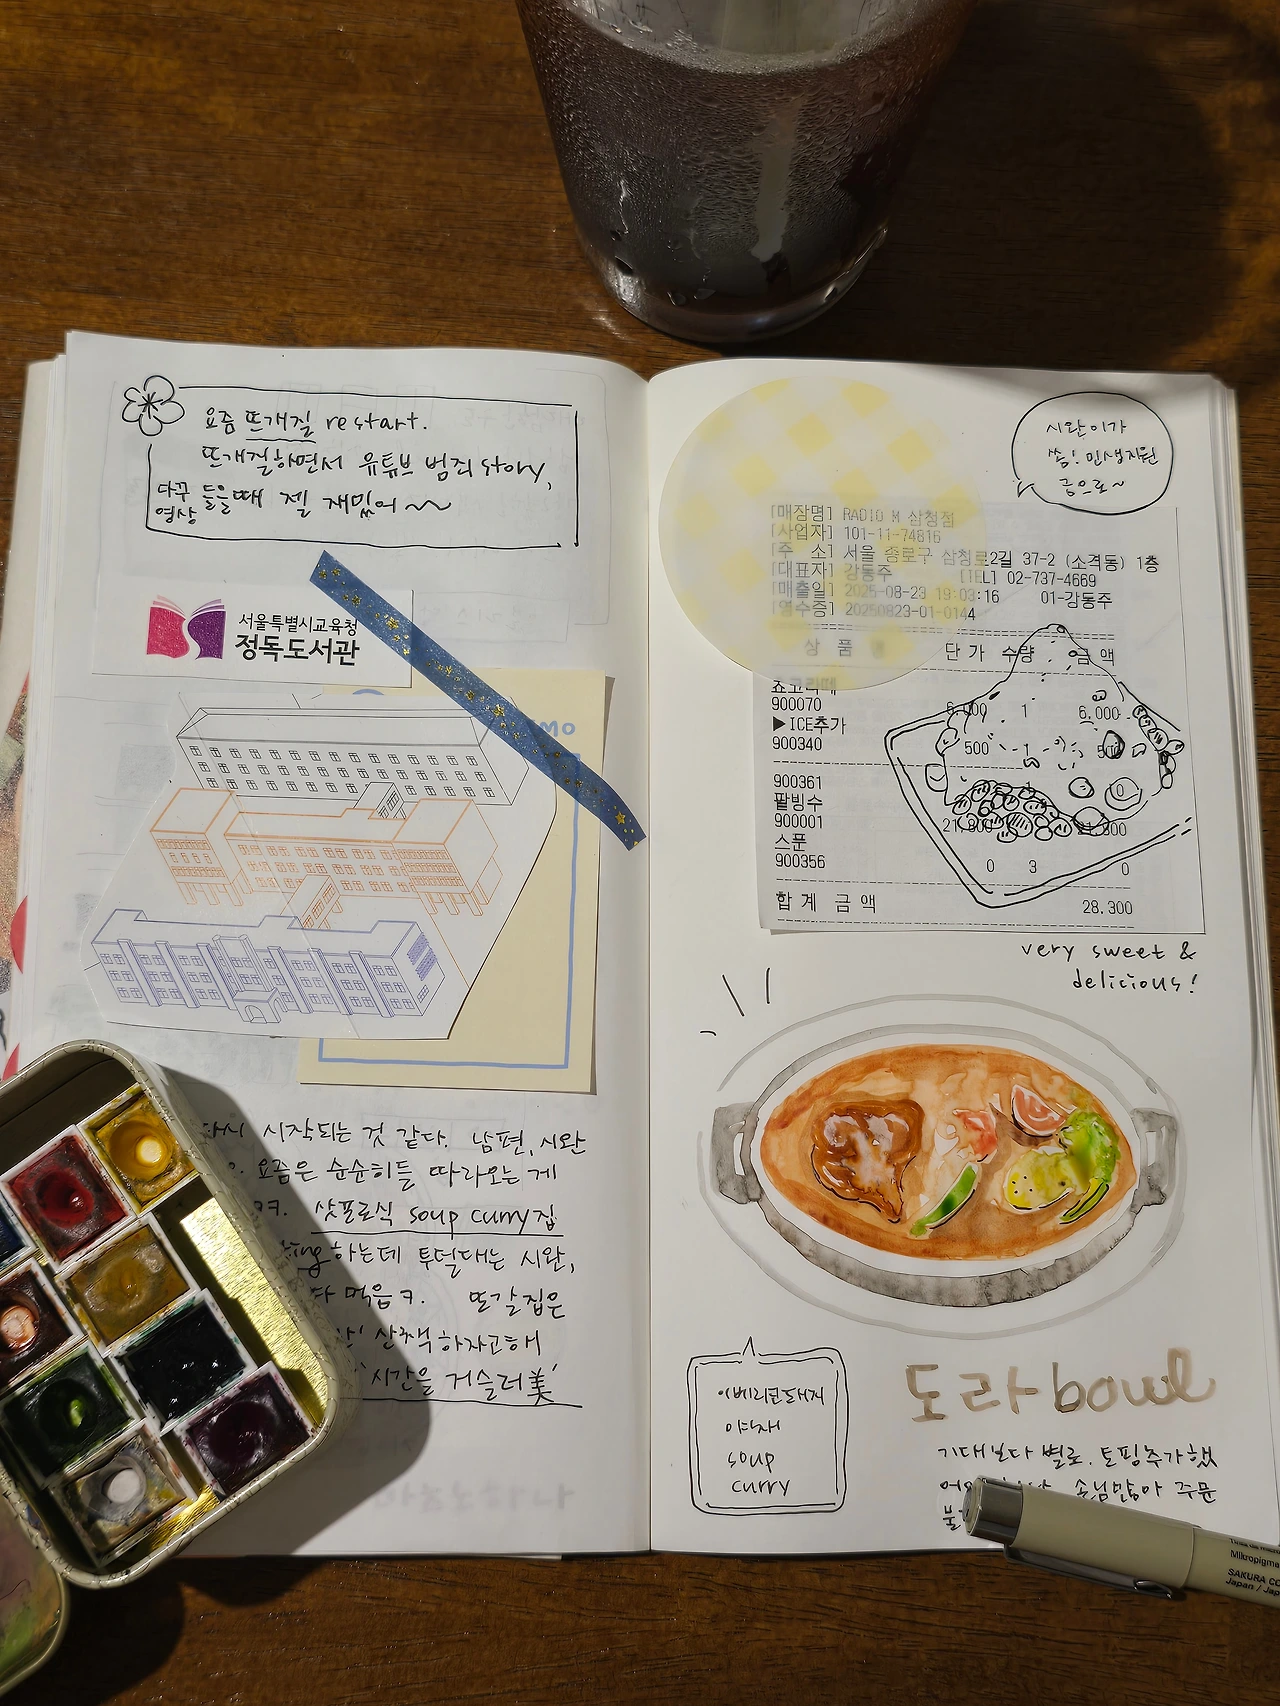 요즘 뜨개질 restart.
뜨개질하면서 유튜브 범죄 story,
다꾸
영상
들을때 젤 재밌어~~
서울특별시교육청
정독도서관
MO
시작되는 것 같다. 남편, 시완
요즘은 순순히들 따라오는 게
삿포로식 soup curry집
하는데 투덜대는 시완,
다 먹음ㅋ. 또갈집은
산책하자고해서
'시간을 거슬러美'
시완이가
쏨! 민생지원
금으로~
[매장명] RADIO M 삼청점
[사업자] 101-11-74816
[주 소] 서울 종로구 삼청로2길 37-2 (소격동) 1층
[대표자] 강동주 [TEL] 02-737-4669
[매출일] 2025-08-23 19:03:16 01-강동주
[영수증] 20250823-01-0144
상 품 명 단 가 수량 금 액
쵸코라떼
900070 6,000 1 6,000
▶ICE추가
900340 500 1
900361
팥빙수
900001
스푼
900356 0 3 0
합 계 금 액 28,300
very sweet &
delicious!
이베리코돼지
야채
soup
curry
도라bowl
기대보다 별로. 토핑추가했
손님많아 주문
Mikropigma
SAKURA CO
Japan / Jap